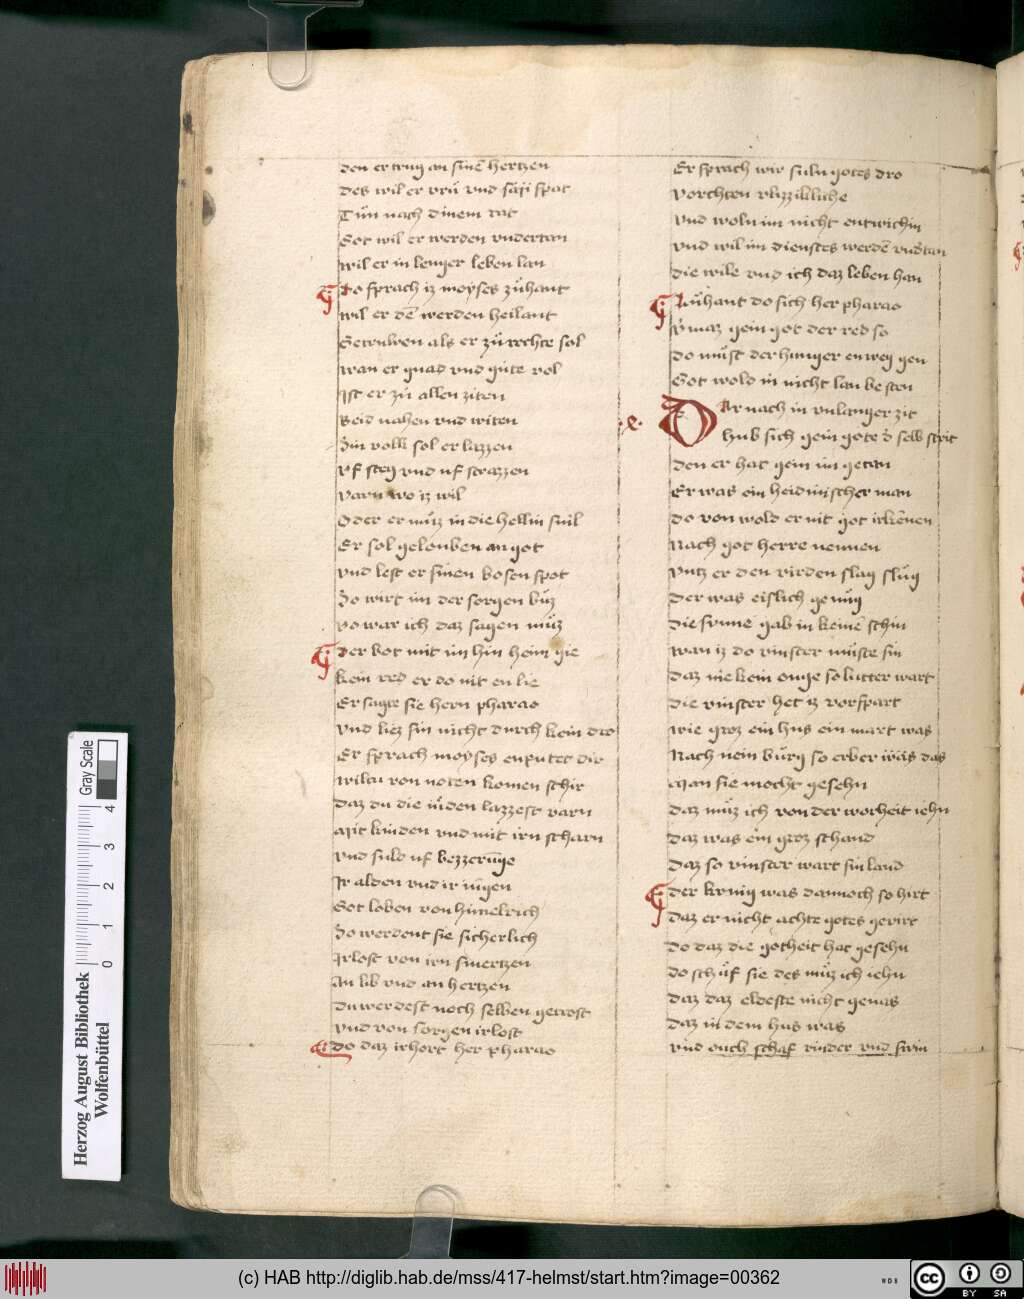 den er trug an sinē hertzen
des wil er vrü vnd spat
Tün nach dinem rat
Got wil er werden vndertan
wil er in lenger leben lan
do sprach iz moyses zühant
wil er dē werden heilant
Gerulven als er zü rechte sol
wan er gnad vnd güte vol
Ist er zü allen ziten
Beid nahen vnd witen
Sin volk sol er lazzen
vf steg vnd uf strazzen
varn wo iz wil
Oder er müz in die hellin
Er sol gelouben an got
vnd lest er sinen bosen spot
So wirt im der sorgen büz
vo war ich daz sagen müz
der bot mit im hin heim gie
kein red er do nit en lie
Er sagte sie hern pharao
vnd liez sin nicht durch kein dro
Er sprach moyses enputet dir
wiltu von noten komen schir
daz du die iüden lazzest varn
Mit kinden vnd mit irn scharn
vnd suld uf bezzerūge
Ir alden vnd ir iūgen
Got loben von himelrich
So werdent sie sicherlich
Irlost von irn smertzen
An lib vnd an hertzen
Du werdest noch selben getrost
vnd von sorgen irlost
Do daz irhort her pharao
Er sprach wir suln gotes dro
vorchten vlizzikliche
vnd woln im nicht entwichin
vnd wil im dienstes werdē vnd̾tan
die wile vnd ich daz leben han
Zühant do sich her pharao
gein got der red so
do müst der hunger enweg gen
Got wold in nicht lan besten
Dar nach in vnlanger zit
hub sich gein gote d̾ selb strit
den er hat gein im getan
Er was ein heidinischer man
do von wold er nit got irkēnen
Nach got herre nennen
vntz er den virden slag slüg
der was eislich genüg
die sunne gab in keinē schin
wan iz do vinster müste sin
daz nie kein ouge so lutter wart
die vinster het iz vorspart
wie groz ein hus ein mart was
Nach nein bürg so erber wäs das
Man sie mocht gesehn
daz müz ich von der worheit iehn
daz was ein groz schand
daz so vinster wart sin land
der kunig was dannoch so hirt
daz er nicht achte gotes
do daz die gotheit hat gesehn
do schüf sie des müz ich iehn
daz daz eldeste nicht genas
daz in dem hus was
vnd ouch schaf rinder vnd swin
Herzog August Bibliothek
Wolfenbüttel
0 1 2 3 4
Gray Scale
(c) HAB http://diglib.hab.de/mss/417-helmst/start.htm?image=00362
WDB
cc BY SA